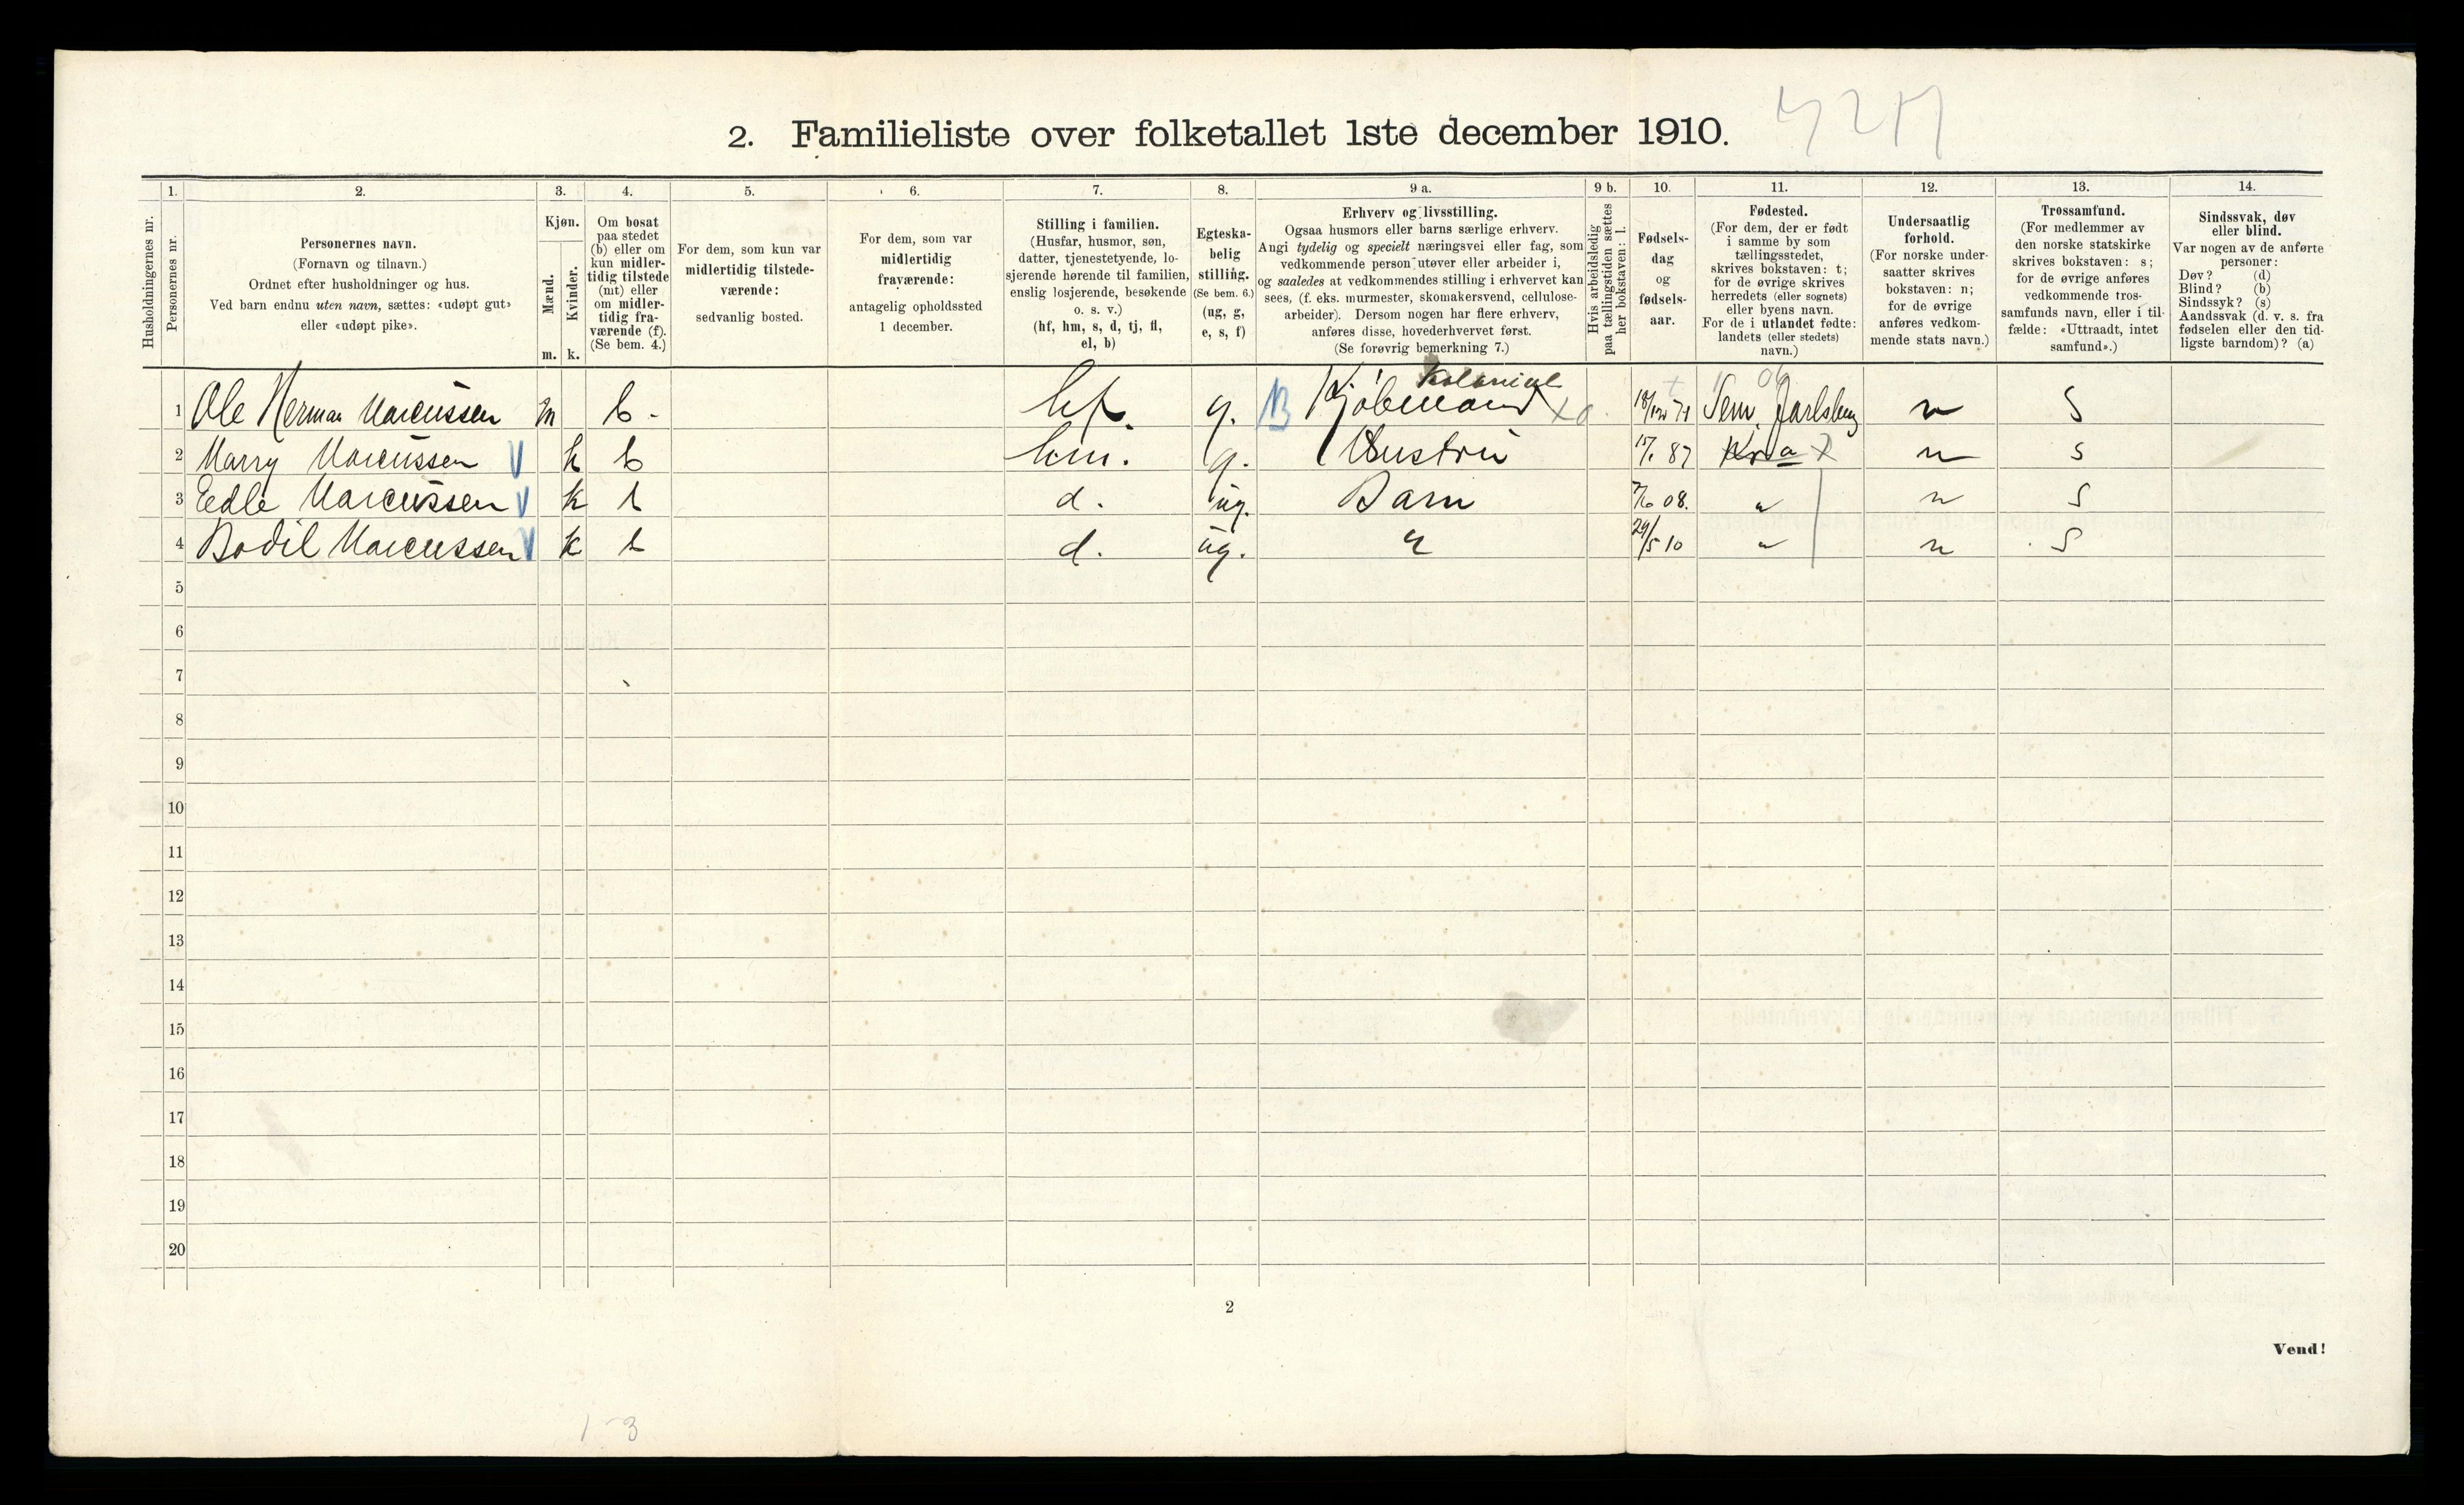 2. Familieliste over folketallet 1ste december 1910.
Husholdningernes nr.
1.
Personernes nr.
2.
Personernes navn.
(Fornavn og tilnavn.)
Ordnet efter husholdninger og hus.
Ved barn endnu uten navn, sættes: «udøpt gut»
eller «udøpt pike».
3.
Kjøn.
Mænd.
Kvinder.
m. k.
4.
Om bosat
paa stedet
(b) eller om
kun midler-
tidig tilstede
(mt) eller
om midler-
tidig fra-
værende (f).
(Se bem. 4.)
5.
For dem, som kun var
midlertidig tilstede-
værende:
sedvanlig bosted.
6.
For dem, som var
midlertidig
fraværende:
antagelig opholdssted
1 december.
7.
Stilling i familien.
(Husfar, husmor, søn,
datter, tjenestetyende, lo-
sjerende hørende til familien,
enslig losjerende, besøkende
o. s. v.)
(hf, hm, s, d, tj, fl,
el, b)
8.
Egteska-
belig
stilling.
(Se bem. 6.)
(ug, g,
e, s, f)
9 a.
Erhverv og livsstilling.
Ogsaa husmors eller barns særlige erhverv.
Angi tydelig og specielt næringsvei eller fag, som
vedkommende person utøver eller arbeider i,
og saaledes at vedkommendes stilling i erhvervet kan
sees, (f. eks. murmester, skomakersvend, cellulose-
arbeider). Dersom nogen har flere erhverv,
anføres disse, hovederhvervet først.
(Se forøvrig bemerkning 7.)
9 b.
Hvis arbeidsledig
paa tællingstiden sættes
her bokstaven: l.
10.
Fødsels-
dag
og
fødsels-
aar.
11.
Fødested.
(For dem, der er født
i samme by som
tællingsstedet,
skrives bokstaven: t;
for de øvrige skrives
herredets (eller sognets)
eller byens navn.
For de i utlandet fødte:
landets (eller stedets)
navn.)
12.
Undersaatlig
forhold.
(For norske under-
saatter skrives
bokstaven: n;
for de øvrige
anføres vedkom-
mende stats navn.)
13.
Trossamfund.
(For medlemmer av
den norske statskirke
skrives bokstaven: s;
for de øvrige anføres
vedkommende tros-
samfunds navn, eller i til-
fælde: «Uttraadt, intet
samfund».)
14.
Sindssvak, døv
eller blind.
Var nogen av de anførte
personer:
Døv? (d)
Blind? (b)
Sindssyk? (s)
Aandssvak (d. v. s. fra
fødselen eller den tid-
ligste barndom)? (a)
Kolonial
1 Ole Herman Marcussen m b. hf. g. B Kjøbmand 18/12 71 Sem, Jarlsberg n S
2 Marry Marcussen V k b hm. g. Hustru 87 Kr.a n s
3 Eedle Marcussen V k b d. ug. Barn 7/6 08. " n S
4 Bodil Marcussen V k b d. ug. " 29/5 10 " n S
5
6
7
8
9
10
11
12
13
14
15
16
17
18
19
20
2
Vend!
1-3